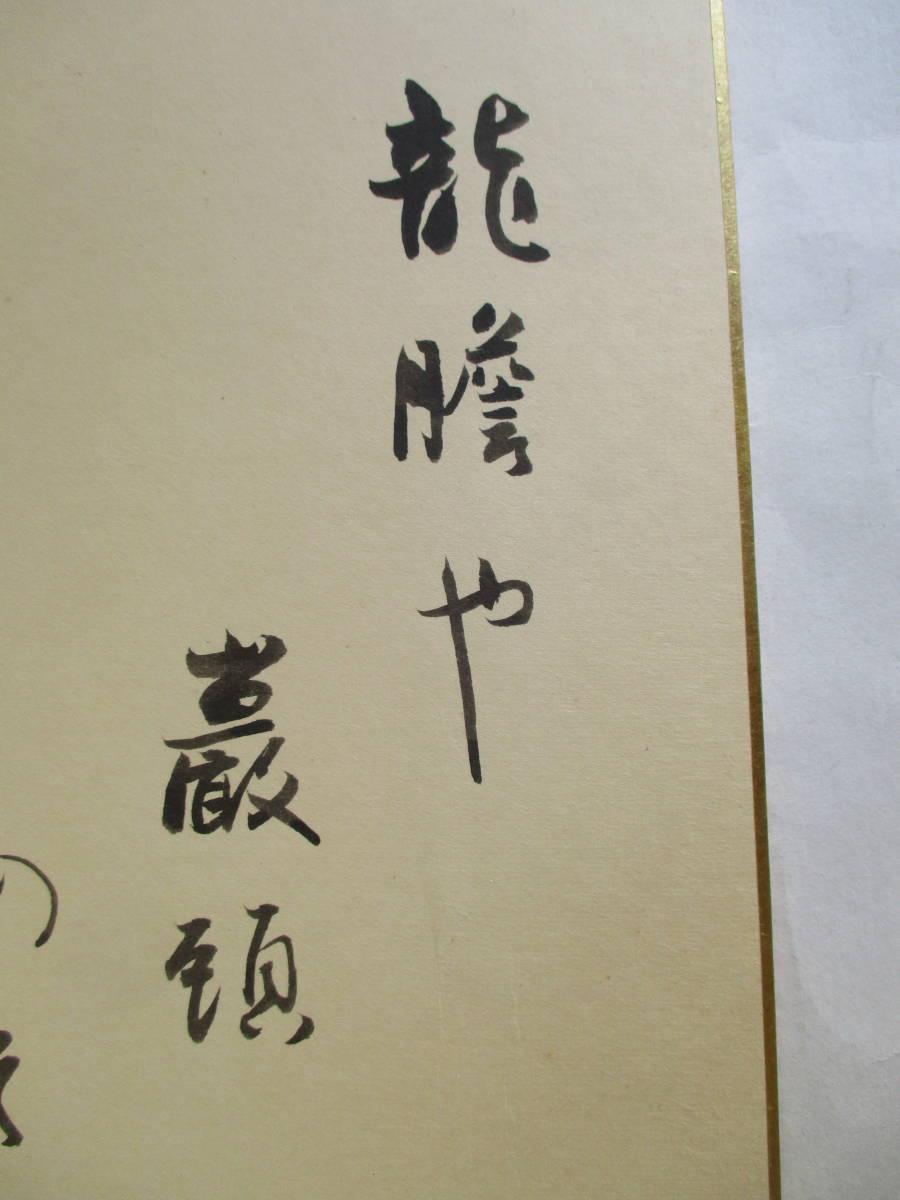 龍膽や
巖頭
の